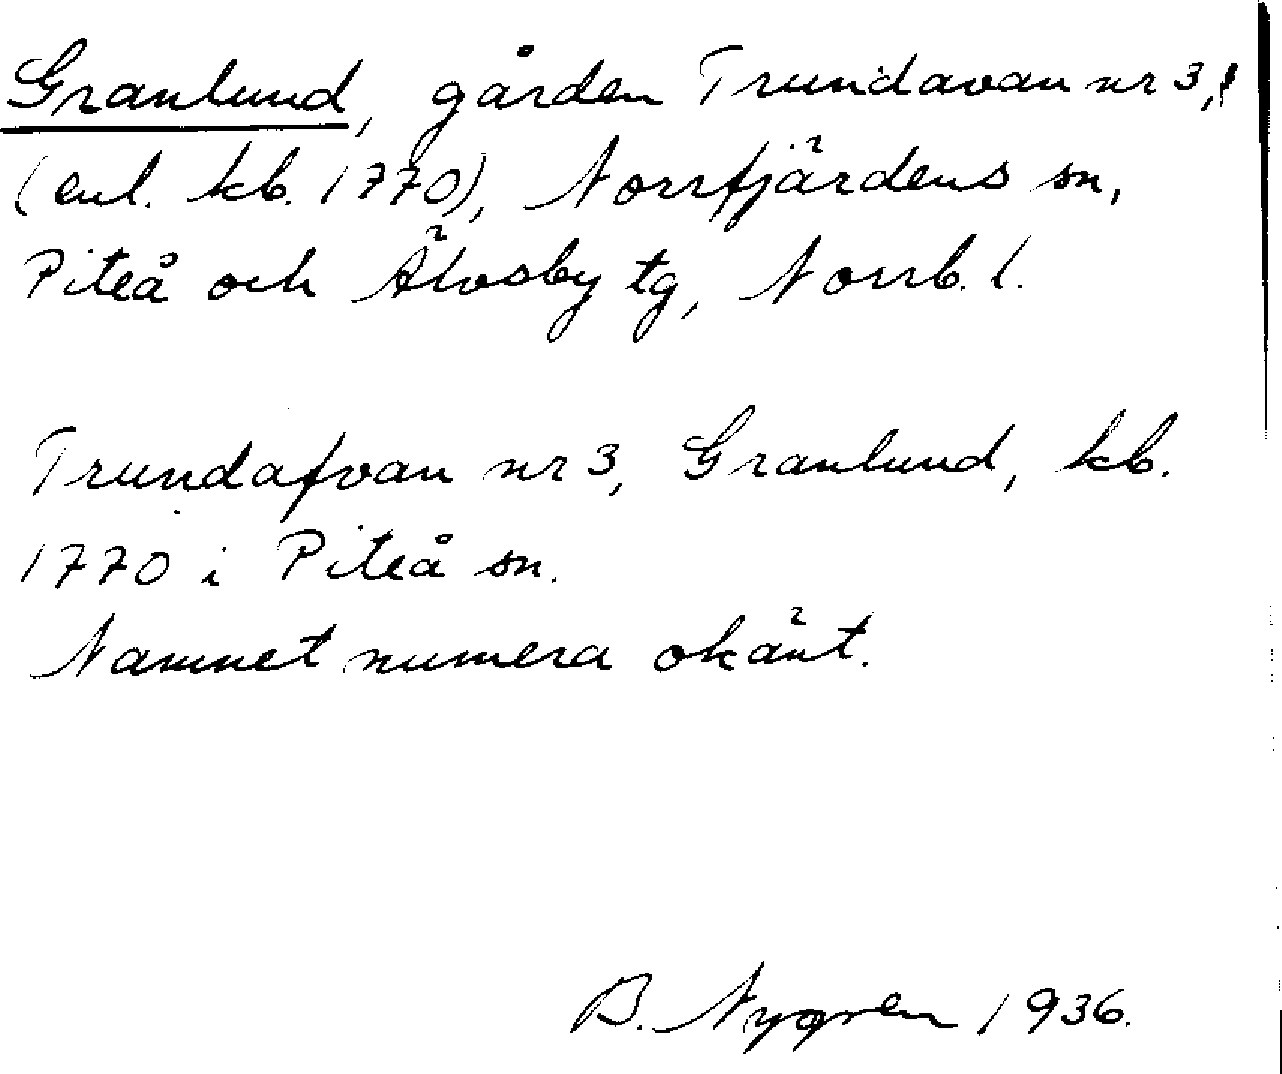 Granlund, gården Trundavan nr 3,
(enl. kb. 1770), Norrfjärdens sn,
Piteå och Älvsby tg, Norrb. l.
Trundafvan nr 3, Granlund, kb.
1770 i Piteå sn.
Namnet numera okänt.
B. Nygren 1936.